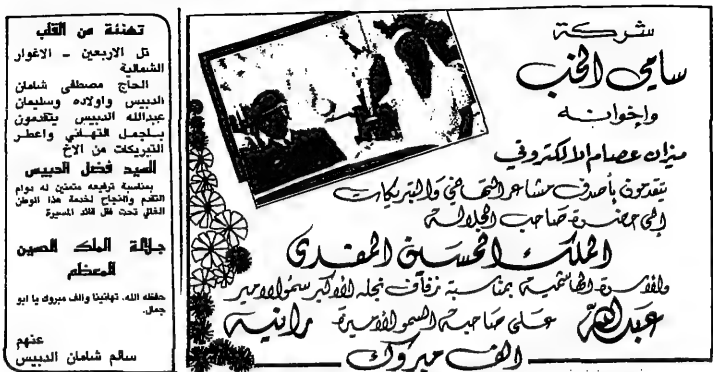 شركة
سامي الخب
وإخوانه
ميزان عصام الالكتروني
يتقدمون بأصدق مشاعر التهاني والتبريكات
إلى حضرة صاحب الجلالة
الملك الحسين المفدى
والأسرة الهاشمية بمناسبة زفاف نجله الأكبر سمو الأمير
عبدالله على صاحبة السمو الأميرة رانية
الف مبروك
تهنئة من القلب
تل الاربعين - الاغوار
الشمالية
الحاج مصطفى شامان
الدبيس واولاده وسليمان
عبدالله الدبيس يتقدمون
باجمل التهاني واعطر
التبريكات من الاخ
السيد فضل الدبيس
بمناسبة ترفيعه متمنين له دوام
التقدم والنجاح لخدمة هذا الوطن
الغالي تحت ظل قائد المسيرة
جلالة الملك الحسين
المعظم
حفظه الله. تهانينا والف مبروك يا ابو
جمال.
عنهم
سالم شامان الدبيس